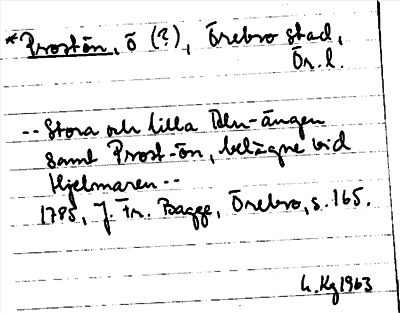 *Prostön, ö (?), Örebro stad,
Ör. l.
-- Stora och lilla Åln-ängen
samt Prost-ön, belägne vid
Hjelmaren --
1785, J. Fr. Bagge, Örebro, s. 165.
L. Kg 1963